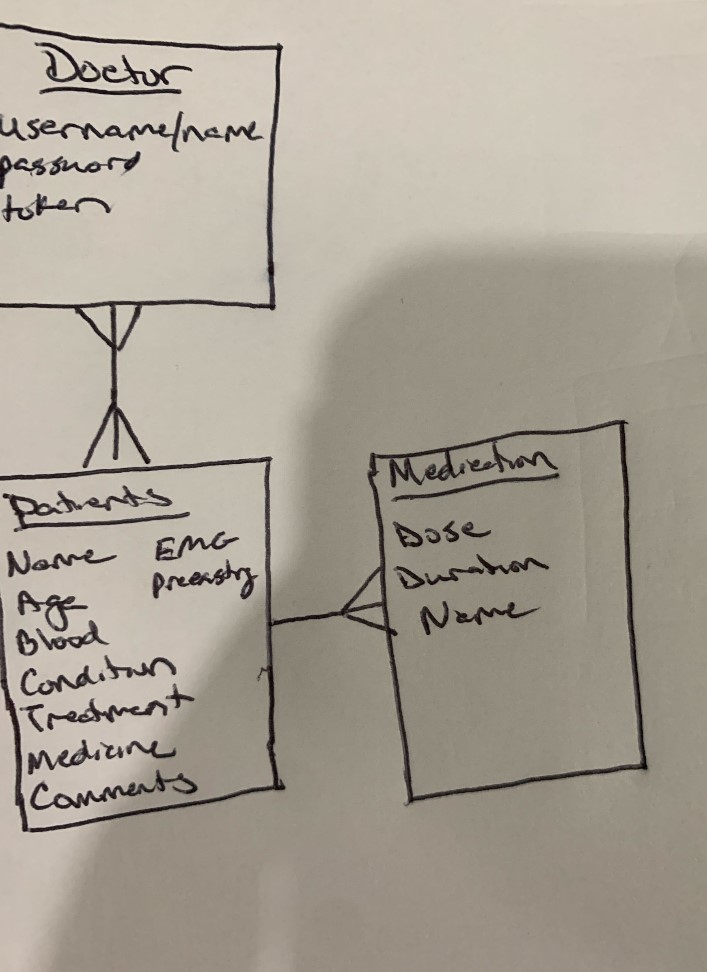 Doctor
username/name
password
token
Patients
Name
Age
Blood
Condition
Treatment
Medicine
Comments
EMG
Medication
Dose
Duration
Name